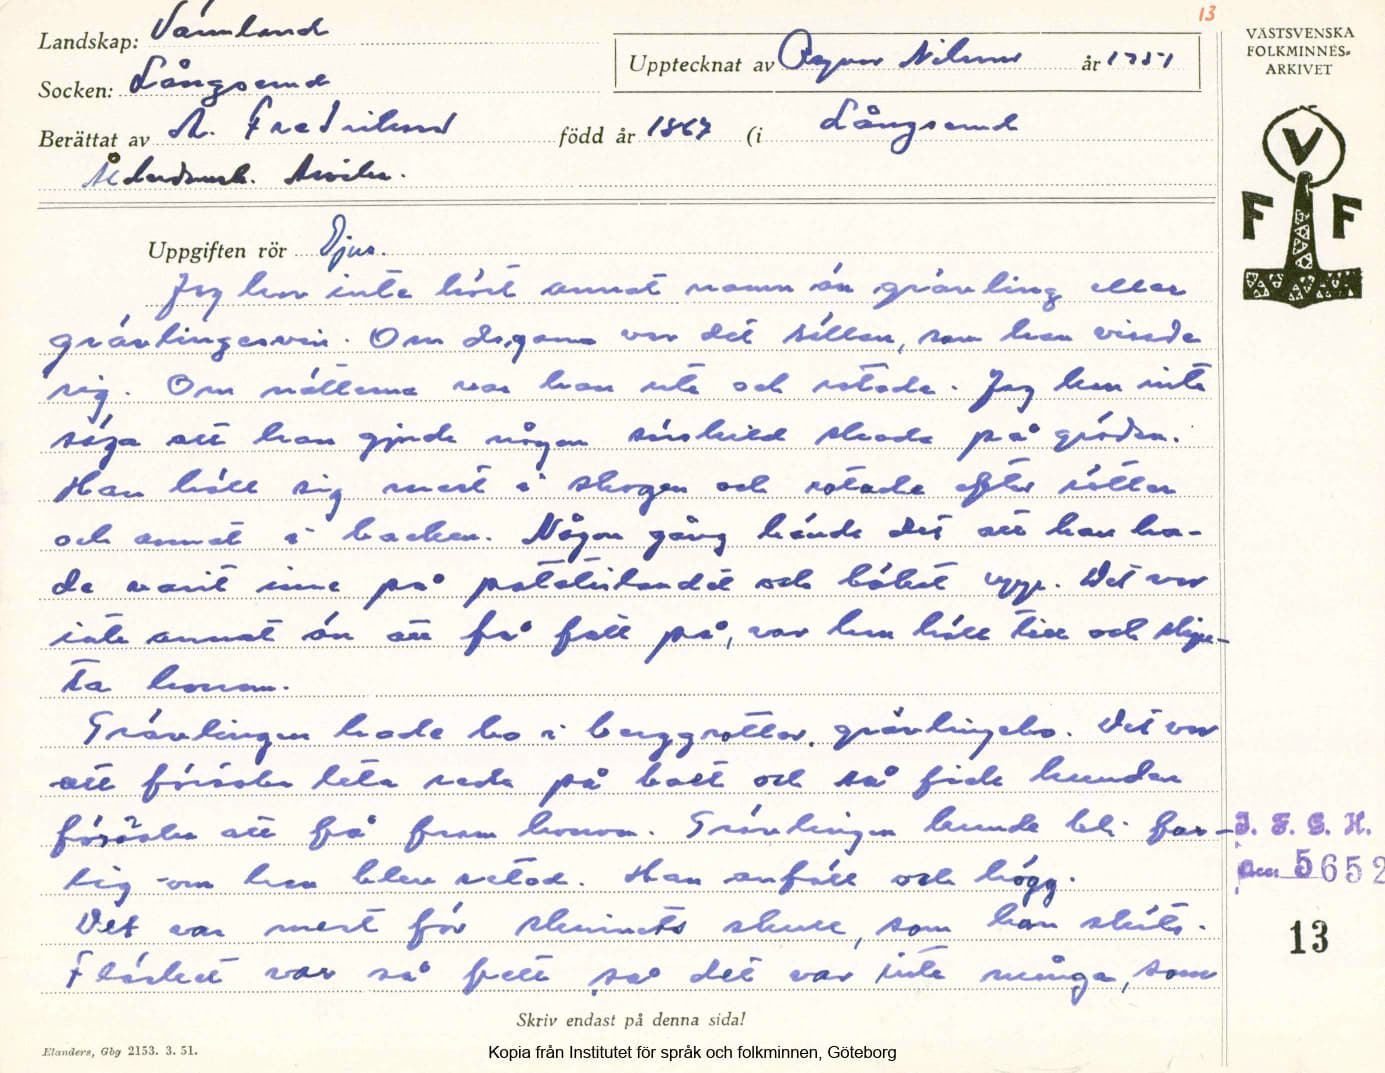 13
Landskap: Värmland
Upptecknat av Ragnar Nilsson år 1951
Socken: Långserud
Berättat av A. Fredriksson född år 1867 (i Långserud
Ålderdomsh.
VÄSTSVENSKA
FOLKMINNES-
ARKIVET
V
F F
Uppgiften rör Djur.
Jag har inte hört annat namn än grävling eller
grävlingesvin. Om dagarna var det sällan, som han visade
sig. Om nätterna var han ute och rotade. Jag kan inte
säga att han gjorde någon särskild skada på gröden.
Han höll sig mest i skogen och rotade efter rötter
och annat i backen. Någon gång hände det att han ha-
de varit inne på potatislandet och bökat upp. Det var
inte annat än att få fatt på, var han höll till och skju-
ta honom.
Grävlingen hade bo i berggrottor, grävlingebo. Det var
att försöka leta reda på boet och så fick hunden
försöka att få fram honom. Grävlingen kunde bli far-
lig om han blev retad. Han anföll och högg.
Det var mest för skinnets skull, som han sköts.
Fläsket var så fett så det var inte många, som
I. F. G. H.
acc. 5652
13
Skriv endast på denna sida!
Elanders, Gbg 2153. 3. 51.
Kopia från Institutet för språk och folkminnen, Göteborg